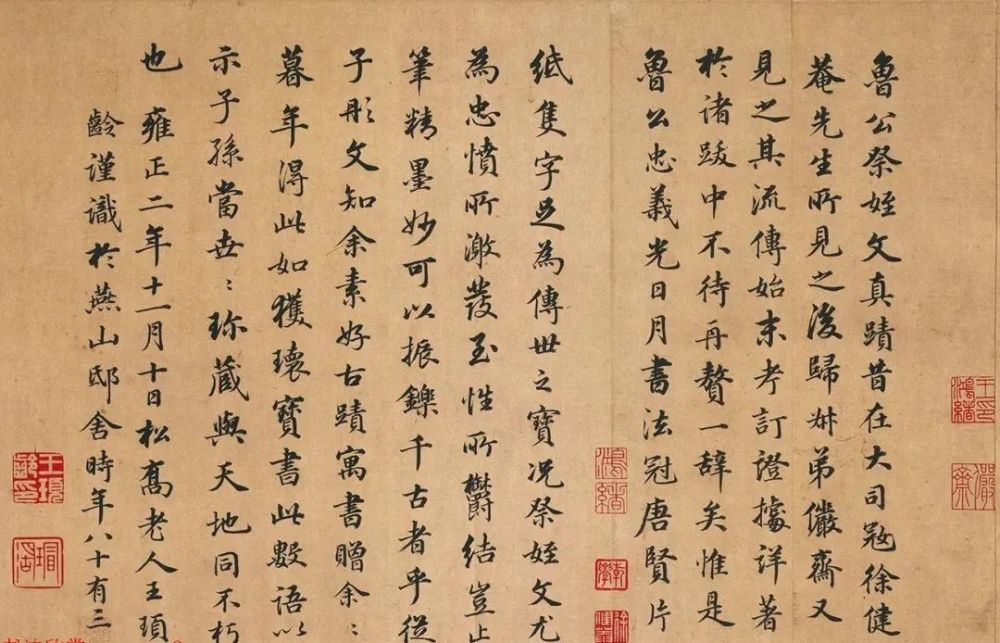 魯公祭姪文真蹟昔在大司寇徐健
菴先生所見之後歸牀弟儼齋又
見之其流傳始末考訂證據詳著
於諸跋中不待再贅一辭矣惟是
魯公忠義光日月書法冠唐賢片
紙隻字足為傳世之寶况祭姪文尤
為忠憤所激發至性所鬱結豈止
筆精墨妙可以振鑠千古者乎從
子彤文知余素好古蹟寓書贈余〻
暮年得此如獲瓌寶書此數語以
示子孫當世〻珎藏與天地同不朽
也 雍正二年十一月十日松髙老人王頊
齡謹識於燕山邸舍時年八十有三
王頊齡印